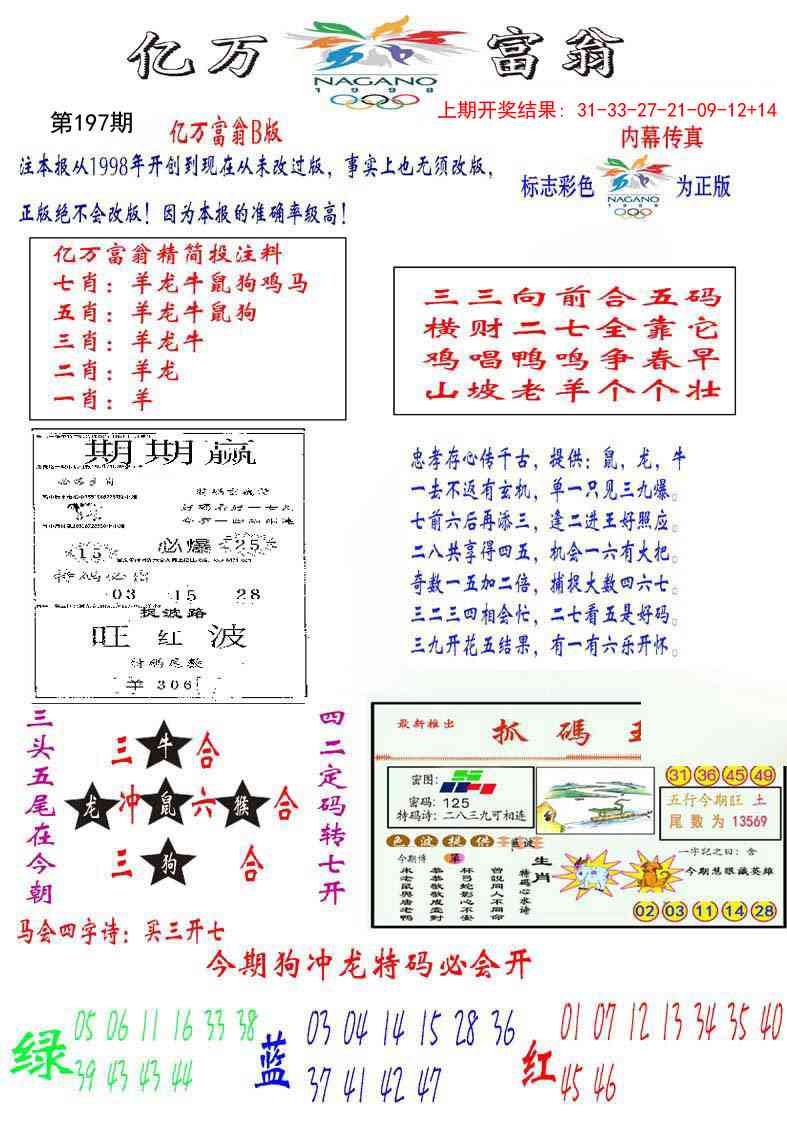 亿万 富翁
NAGANO
1998
第197期
亿万富翁B版
上期开奖结果：31-33-27-21-09-12+14
内幕传真
注本报从1998年开创到现在从未改过版，事实上也无须改版，
正版绝不会改版！因为本报的准确率级高！
标志彩色
NAGANO
1998
为正版
亿万富翁精简投注料
七肖：羊龙牛鼠狗鸡马
五肖：羊龙牛鼠狗
三肖：羊龙牛
二肖：羊龙
一肖：羊
三三向前合五码
横财二七全靠它
鸡唱鸭鸣争春早
山坡老羊个个壮
期期赢
15
必爆
25
特码必出
03 15 28
捉波路
旺 红 波
特码尾数
羊 306
忠孝存心传千古，提供：鼠，龙，牛
一去不返有玄机，单一只见三九爆。
七前六后再添三，逢二进王好照应。
二八共享得四五，机会一六有大把。
奇数一五加二倍，捕捉大数四六七。
三二三四相会忙，二七看五是好码。
三九开花五结果，有一有六乐开怀。
三头五尾在今朝
三 牛 合
龙 冲 鼠 六 猴 合
三 狗 合
四二定码转七开
马会四字诗：买三开七
最新推出
抓碼
密图：
密码：125
特码诗：二八三九可相连
31 36 45 49
五行今期旺 土
尾数为 13569
色波提供
今期博
第
生肖
特码心水诗
曾說同人不同命
杯弓蛇影心不安
恭恭敬敬成堂對
米老鼠與唐老鸭
一字记之曰：舍
今期慧眼識英雄
02 03 11 14 28
今期狗冲龙特码必会开
绿
05 06 11 16 33 38
39 43 43 44
蓝
03 04 14 15 28 36
37 41 42 47
红
01 07 12 13 34 35 40
45 46